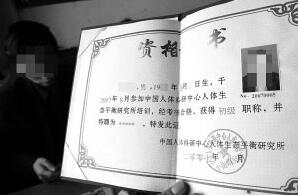 资格 书
男 19 年 月 日生,于
2007年8月参加中国人体 研中心人体生
态平衡研究所培训,经考 合格,获得 初级 职称,并
特聘为 ****** 。特发此证。
20070065
中国人体科研中心人体生态平衡研究所
二零零七年